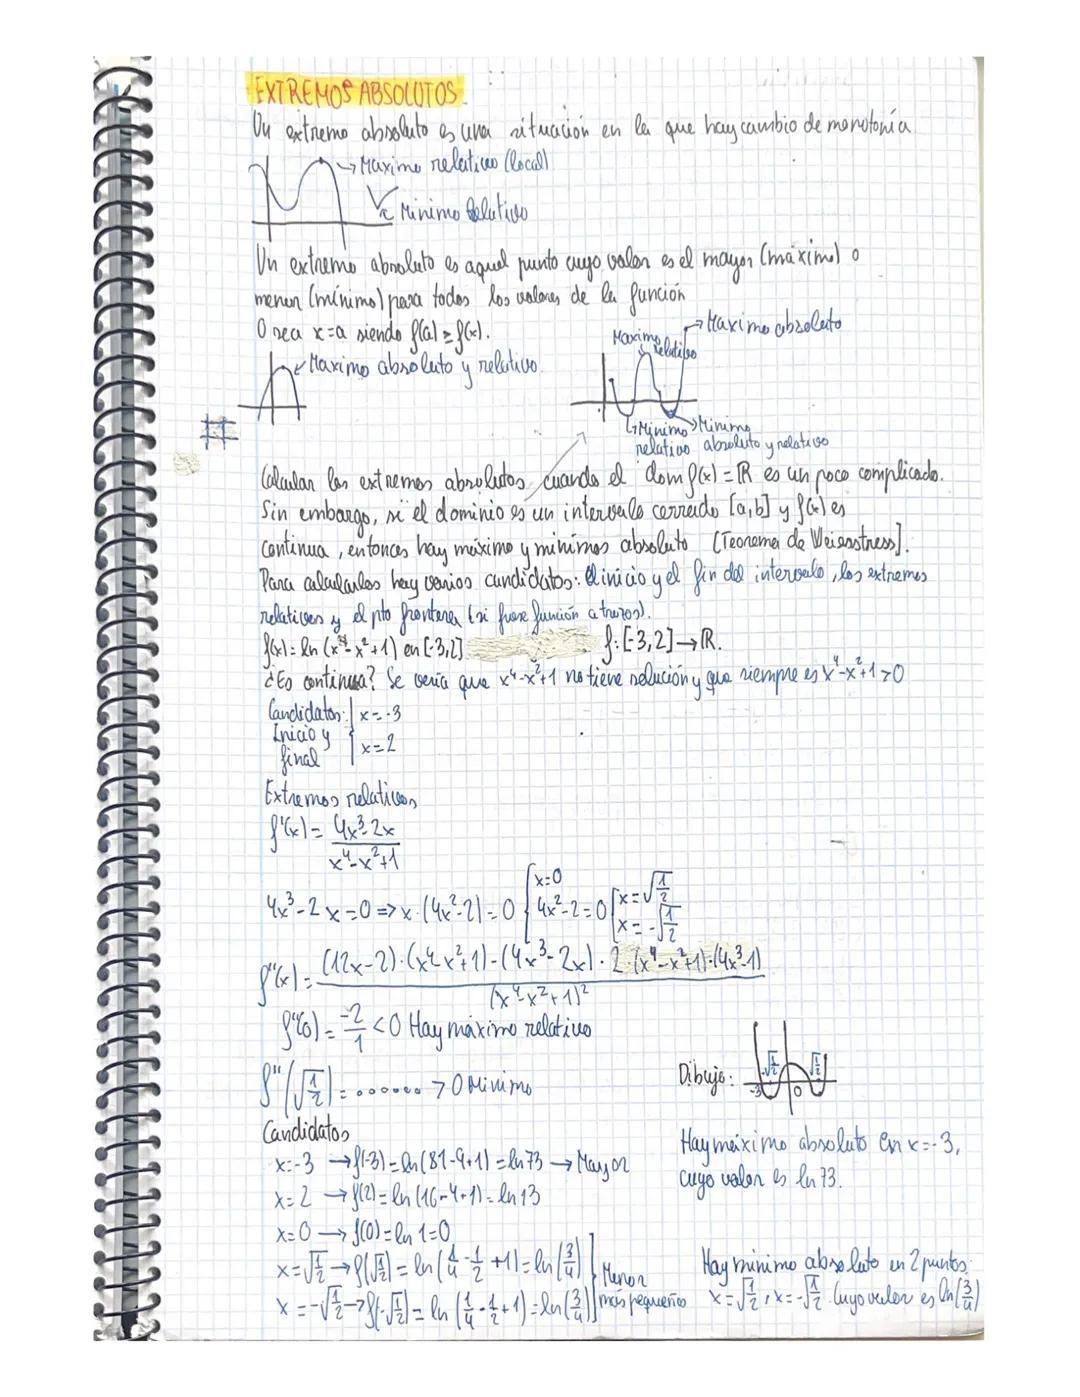 EXTREMOS ABSOLUTOS.
Un extremo absoluto es una situación en la que hay cambio de monotonía
→ Maximo relativo (local)
Minimo Relativo
Un extremo absoluto es aquel punto cuyo valor es el mayor (máximo) o
menor (mínimo) para todos los valores de la función
O sea x=a siendo f(a) ≥ f(x).
Maximo absoluto y relativo
Maximo relativo
→ Maximo absoluto
Minimo relativo
→ Minimo absoluto y relativo
Calcular los extremos absolutos cuando el dom f(x) = ℝ es un poco complicado.
Sin embargo, si el dominio es un intervalo cerrado [a,b] y f(x) es
continua, entonces hay máximo y minimos absoluto [Teorema de Weiersstress].
Para calcularlos hay varios candidatos: El inicio y el fin del intervalo, los extremos
relativos y el pto frontera (si fuese función a trozos).
f(x) = ln (x⁴-x²+1) en [-3,2] f: [-3,2] → ℝ.
¿Es continua? Se vería que x⁴-x²+1 no tiene solución y que siempre es x⁴-x²+1 >0
Candidatos: Inicio y final { x=-3
x=2
Extremos relativos
f'(x) = (4x³-2x)/(x⁴-x²+1)
4x³-2x=0 => x·(4x²-2)=0 { x=0
4x²-2=0 [ x=√(1/2)
x=-√(1/2)
f''(x) = ((12x-2)·(x⁴-x²+1)-(4x³-2x)·2·(x⁴-x²+1)·(4x³-1))/(x⁴-x²+1)²
f''(0) = -2/1 <0 Hay máximo relativo
f''(√(1/2)) = ....... >0 Minimo
Dibujo: -3 -√(1/2) 0 √(1/2)
Candidatos
x=-3 → f(-3) = ln(81-9+1) = ln 73 → Mayor
x=2 → f(2) = ln (16-4+1) = ln 13
x=0 → f(0) = ln 1=0
x=√(1/2) → f(√(1/2)) = ln (1/4-1/2+1) = ln (3/4)
x=-√(1/2) → f(-√(1/2)) = ln (1/4-1/2+1) = ln (3/4)
Menor
más pequeño
Hay máximo absoluto en x=-3,
cuyo valor es ln 73.
Hay minimo absoluto en 2 puntos:
x=√(1/2), x=-√(1/2). Cuyo valor es ln (3/4)